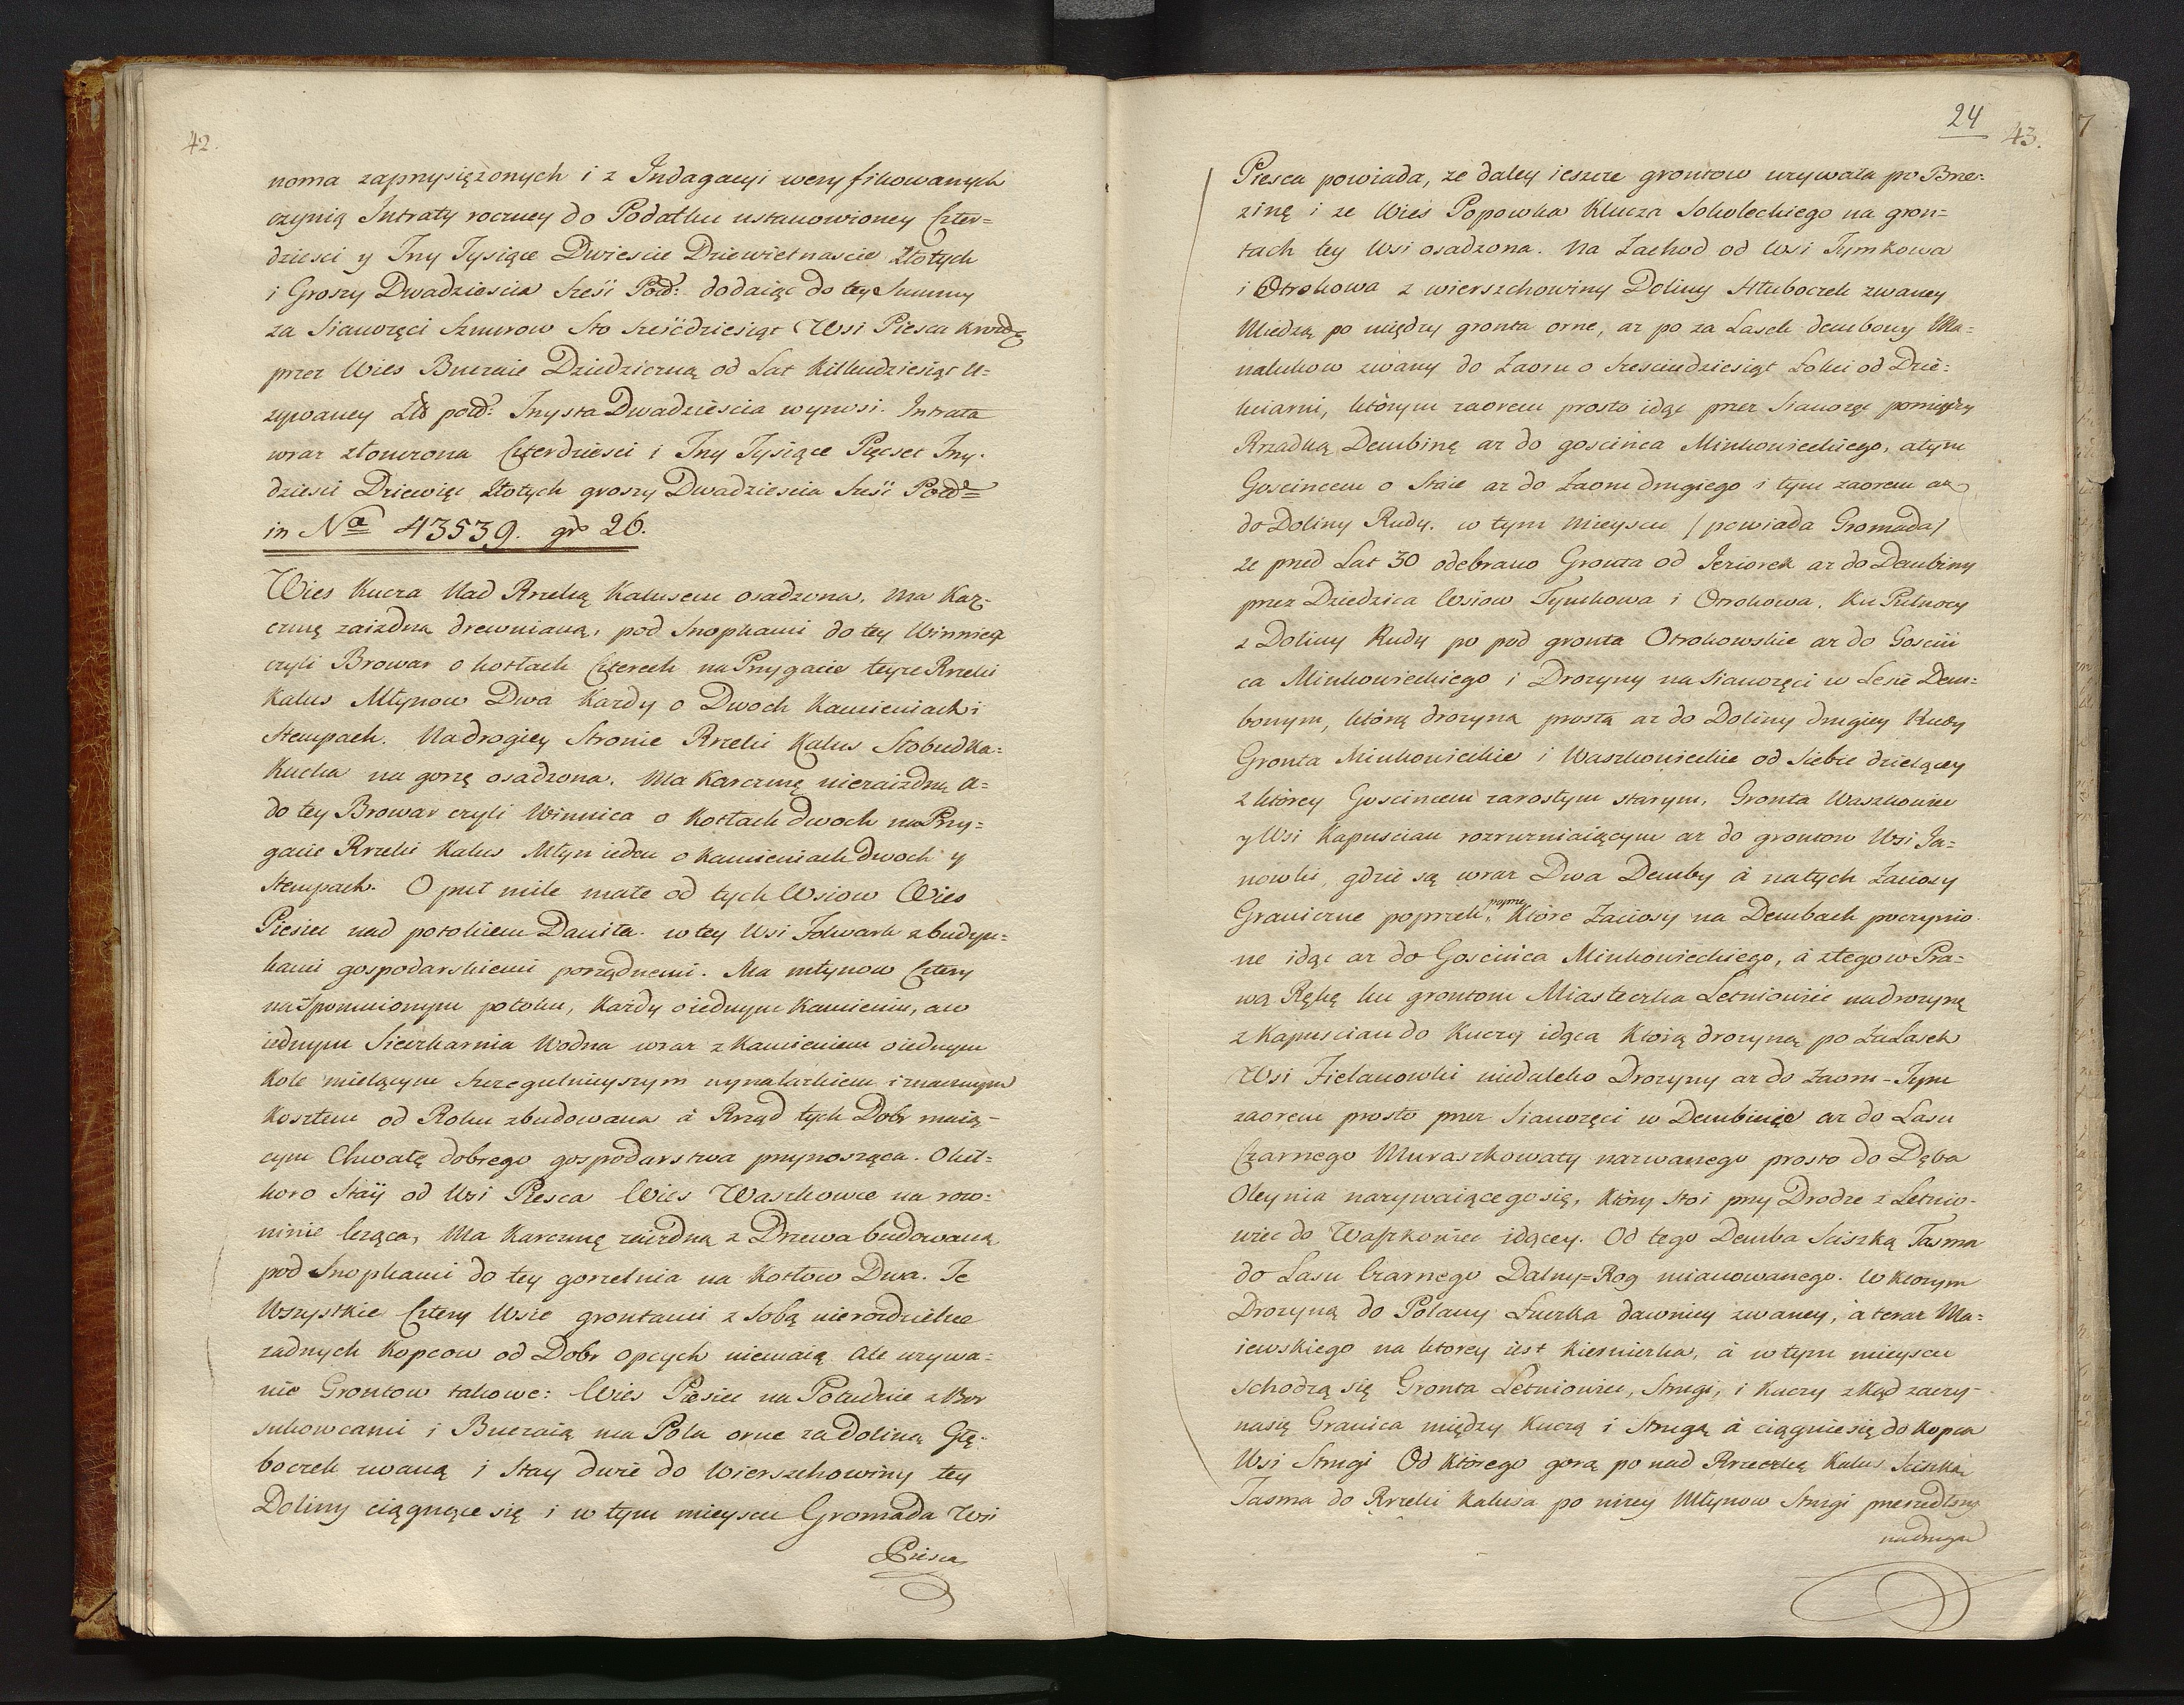 42.
noma zaprzysiężonych i z Indagacyi weryfikowanych
czynią Intraty roczney do Podatku ustanowioney Czter=
dziesci y Trzy Tysiące Dwiescie Dziewietnascie Złotych
i Groszy Dwadziescia Sześć Pold: dodaiąc do tey Summy
za Sianożęci Sznurow Sto Sześćdziesiąt Wsi Piesca krzwdą
przez Wies Buczaie Dziedziczną od Lat Kilkudziesiąt U=
zywaney Zło pold: Trzysta Dwadzieścia wynosi. Intrata
wraz złonczona Czterdziesci i Trzy Tysiące Pięcset Trzy.
dziesci Dziewięc Złotych groszy Dwadziescia Sześć Pold=
in Nᵒ 43539. gr 26.
Wies Kucza Nad Rzeką Kalusem osadzona. Ma Kar,
czmę zaizdną drewnianą, pod Snopkami do tey Winnica
czyli Browar o kotłach Czterech na Przygacie teyze Rzeki
Kalus Młynow Dwa Kazdy o Dwoch Kamieniach i
Stempach. Na drogiey Stronie Rzeki Kalus Słobudka=
Kucka na gorzę osadzona. Ma Karczmę niezaizdną a=
do tey Browar czyli Winnica o Kotłach dwoch na Przy=
gacie Rzeki Kalus Młyn ieden o kamieniach dwoch y
Stempach. O puł mile małe od tych Wsiow Wies
Piesiec nad potokiem Daniła. w tey Wsi Folwark z budyn=
kami gospodarskiemi porządnemi. Ma młynow Cztery
na Spomnionym potoku, Kazdy o iednym Kamieniu, a w
iednym Sieczkarnia Wodna wraz z Kamieniem o iednym
Kole mielącym Szczegulnieyszym wynalazkiem i znacznym
Kosztem od Roku zbudowana à Rząd tych Dobr maią-
cym Chwałę dobrego gospodarstwa przynosząca. Okił=
koro Stay od Wsi Piesca Wies Waszkowce na row=
ninie leząca, Ma Karczmę zaiezdną z Drzewa budowaną
pod Snopkami do tey gorzelnia na Kotłow Dwa. Te
Wszystkie Cztery Wsie grontami z Sobą nierozdzielne
zadnych Kopcow od Dobr opcych niemaią. Ale uzywa=
nie Grontow takowe: Wies Piesiec na Południe z Bor
sukowcami i Buczaią ma Pola orne za Doliną Głę-
boczek zwaną i Stay dwie do Wierszchowiny tey
Doliny ciągnące się i w tym mieyscu Gromada Wsi
Piesca
24
43.
Piesca powiada, ze daley ieszcze grontow uzywała po Brze=
zinę i ze Wies Popowka Klucza Sokoleckiego na gron=
tach tey Wsi osadzona. Na Zachod od Wsi Tymkowa
i Otrokowa z wierszchowiny Doliny Hłuboczek zwaney
Miedzą po między gronta orne, az po za Lasek dembowy Ma=
nalukow zwany do Zaoru o Szesciudziesiąt Łokci od Dzie=
kciarni, którym zaorem prosto idąc przez Sianorzęc pomiędzy
Rzadką Dembinę az do goscinca Minkowieckiego, a tym
Goscincem o Staie az do Zaoru drugiego i tym zaorem az
do Doliny Rudy. w tym mieyscu /powiada Gromada/
ze przed Lat 30 odebrano Gronta od Jeziorek az do Dembiny
przez Dziedzica Wsiow Tymkowa i Otrokowa. Ku Pułnocy
z Doliny Rudy po pod gronta Otrokowskie az do Goscin
ca Minkowieckiego i Drozyny na Sianozęci w Lesie Dem=
bowym, którą drozyna prosta az do Doliny drugiey Rudy
Gronta Minkowieckie i Waszkowieckie od Siebie dzielącey
z którey Goscincem zarostym starym, Gronta Waszkowiec
y Wsi Kapuscian rozrurzniaiącym az do grontow Wsi Ja=
nowki, gdzie są wraz Dwa Demby à natych Zaciosy
Graniczne poprzek, Które Zaciosy na Dembach poczynio
ne idąc az do Goscinca Minkowieckiego, à ztego w Pra=
wą Rękę ku grontom Miasteczka Letniowiec na drozynę
z Kapuscian do Kuczy idąca Którą drozyną po Za Lasek
Wsi Zielanowki niedaleko Drozyny az do Zaoru - Tym
zaorem prosto przez Sianozęci w Dembinęo az do Lasu
Czarnego Muraszkowaty nazwanego prosto do Dęba
Oleynia nazywaiącego się, Który Stoi przy Drodze z Letnio-
wiec do Waszkowiec idącey. Od tego Demba Sciszką Tasma
do Lasu Czarnego Dalny=Rog mianowanego. W Ktorym
Drozyną do Polany Łuczka dawniey zwaney, à teraz Ma=
iewskiego na ktorey iest Kierniczka, à w tym mieyscu
schodzą się Gronta Letniowiec, Strugi, i Kuczy zkąd zaczy-
nasię Granica między Kuczą i Strugą à ciągnie się do Kopca
Wsi Strugi Od Którego gorą po nad Rzeczką Kalus Sciszka
Tasma do Rzeki Kalusa po nizey Młynow Strugi przeszedłszy
na drugą